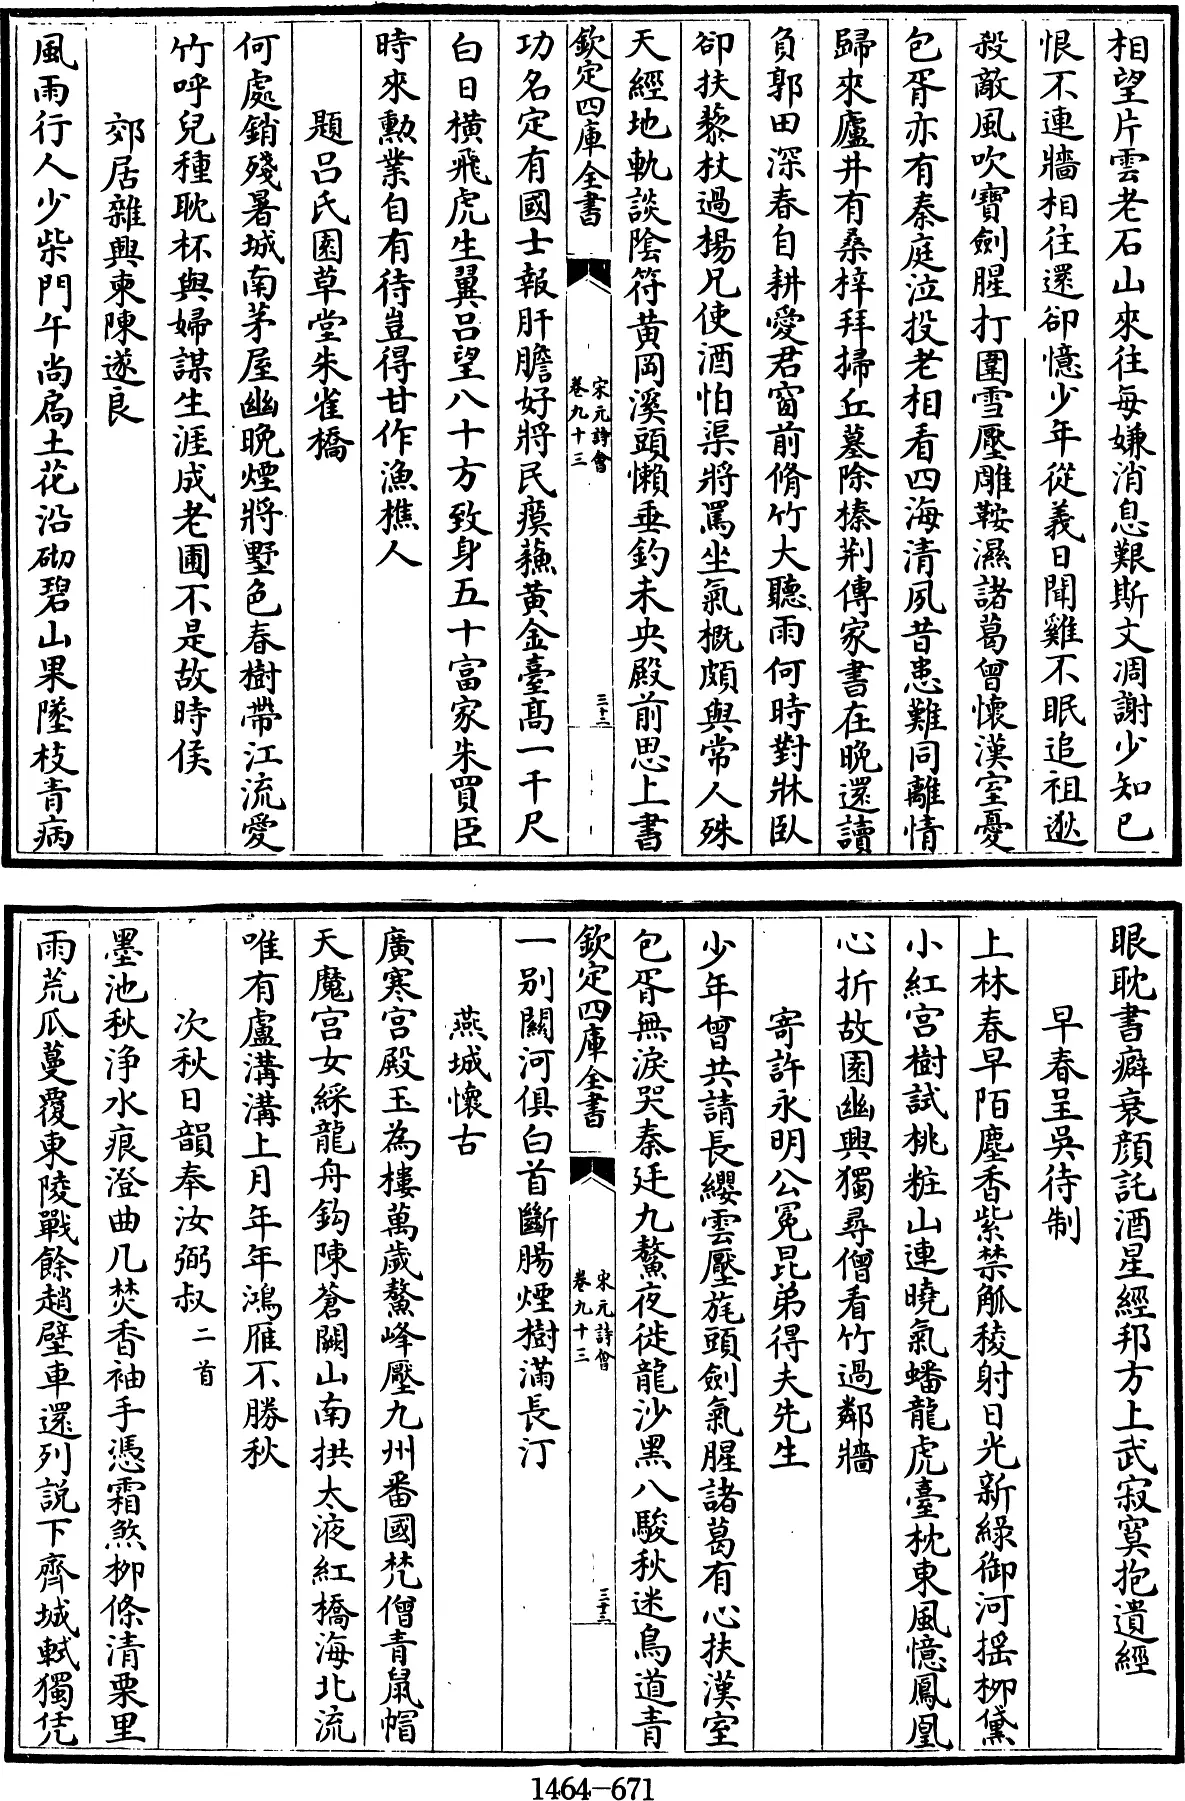 相望片雲老石山來往每嫌消息艱斯文凋謝少知已
恨不連牆相往還卻憶少年從義日聞雞不眠追祖逖
殺敵風吹寶劍腥打圍雪壓雕鞍濕諸葛曾懷漢室憂
包胥亦有秦庭泣投老相看四海清夙昔患難同離情
歸來廬井有桑梓拜掃丘墓除榛荆傳家書在晩還讀
負郭田深春自耕愛君窗前脩竹大聽雨何時對牀臥
卻扶藜杖過楊兄使酒怕渠將罵坐氣概頗與常人殊
天經地軌談陰符黄岡溪頭懶垂釣未央殿前思上書
欽定四庫全書
宋元詩會
卷九十三
三十二
功名定有國士報肝膽好將民瘼蘇黄金臺高一千尺
白日横飛虎生翼吕望八十方致身五十富家朱買臣
時來勳業自有待豈得甘作漁樵人
題吕氏園草堂朱雀橋
何處銷殘暑城南茅屋幽晩煙將墅色春樹帶江流愛
竹呼兒種耽杯與婦謀生涯成老圃不是故時侯
郊居雜興柬陳遂良
風雨行人少柴門午尚扃土花沿砌碧山果墜枝青病
眼耽書癖衰顔託酒星經邦方上武寂寞抱遺經
早春呈吳待制
上林春早陌塵香紫禁觚稜射日光新綠御河揺柳黛
小紅宫樹試桃粧山連曉氣蟠龍虎臺枕東風憶鳳凰
心折故園幽興獨尋僧看竹過鄰牆
寄許永明公冕昆弟得夫先生
少年曾共請長纓雲壓旄頭劍氣腥諸葛有心扶漢室
包胥無淚哭秦廷九鰲夜徙龍沙黑八駿秋迷鳥道青
欽定四庫全書
宋元詩會
卷九十三
三十三
一别關河俱白首斷腸煙樹滿長汀
燕城懷古
廣寒宫殿玉為樓萬歲鰲峰壓九州番國梵僧青鼠帽
天魔宫女綵龍舟鈎陳蒼闕山南拱太液紅橋海北流
唯有盧溝溝上月年年鴻雁不勝秋
次秋日韻奉汝弼叔二首
墨池秋淨水痕澄曲几焚香袖手憑霜煞柳條清栗里
雨荒瓜蔓覆東陵戰餘趙壁車還列説下齊城軾獨凭
1464-671